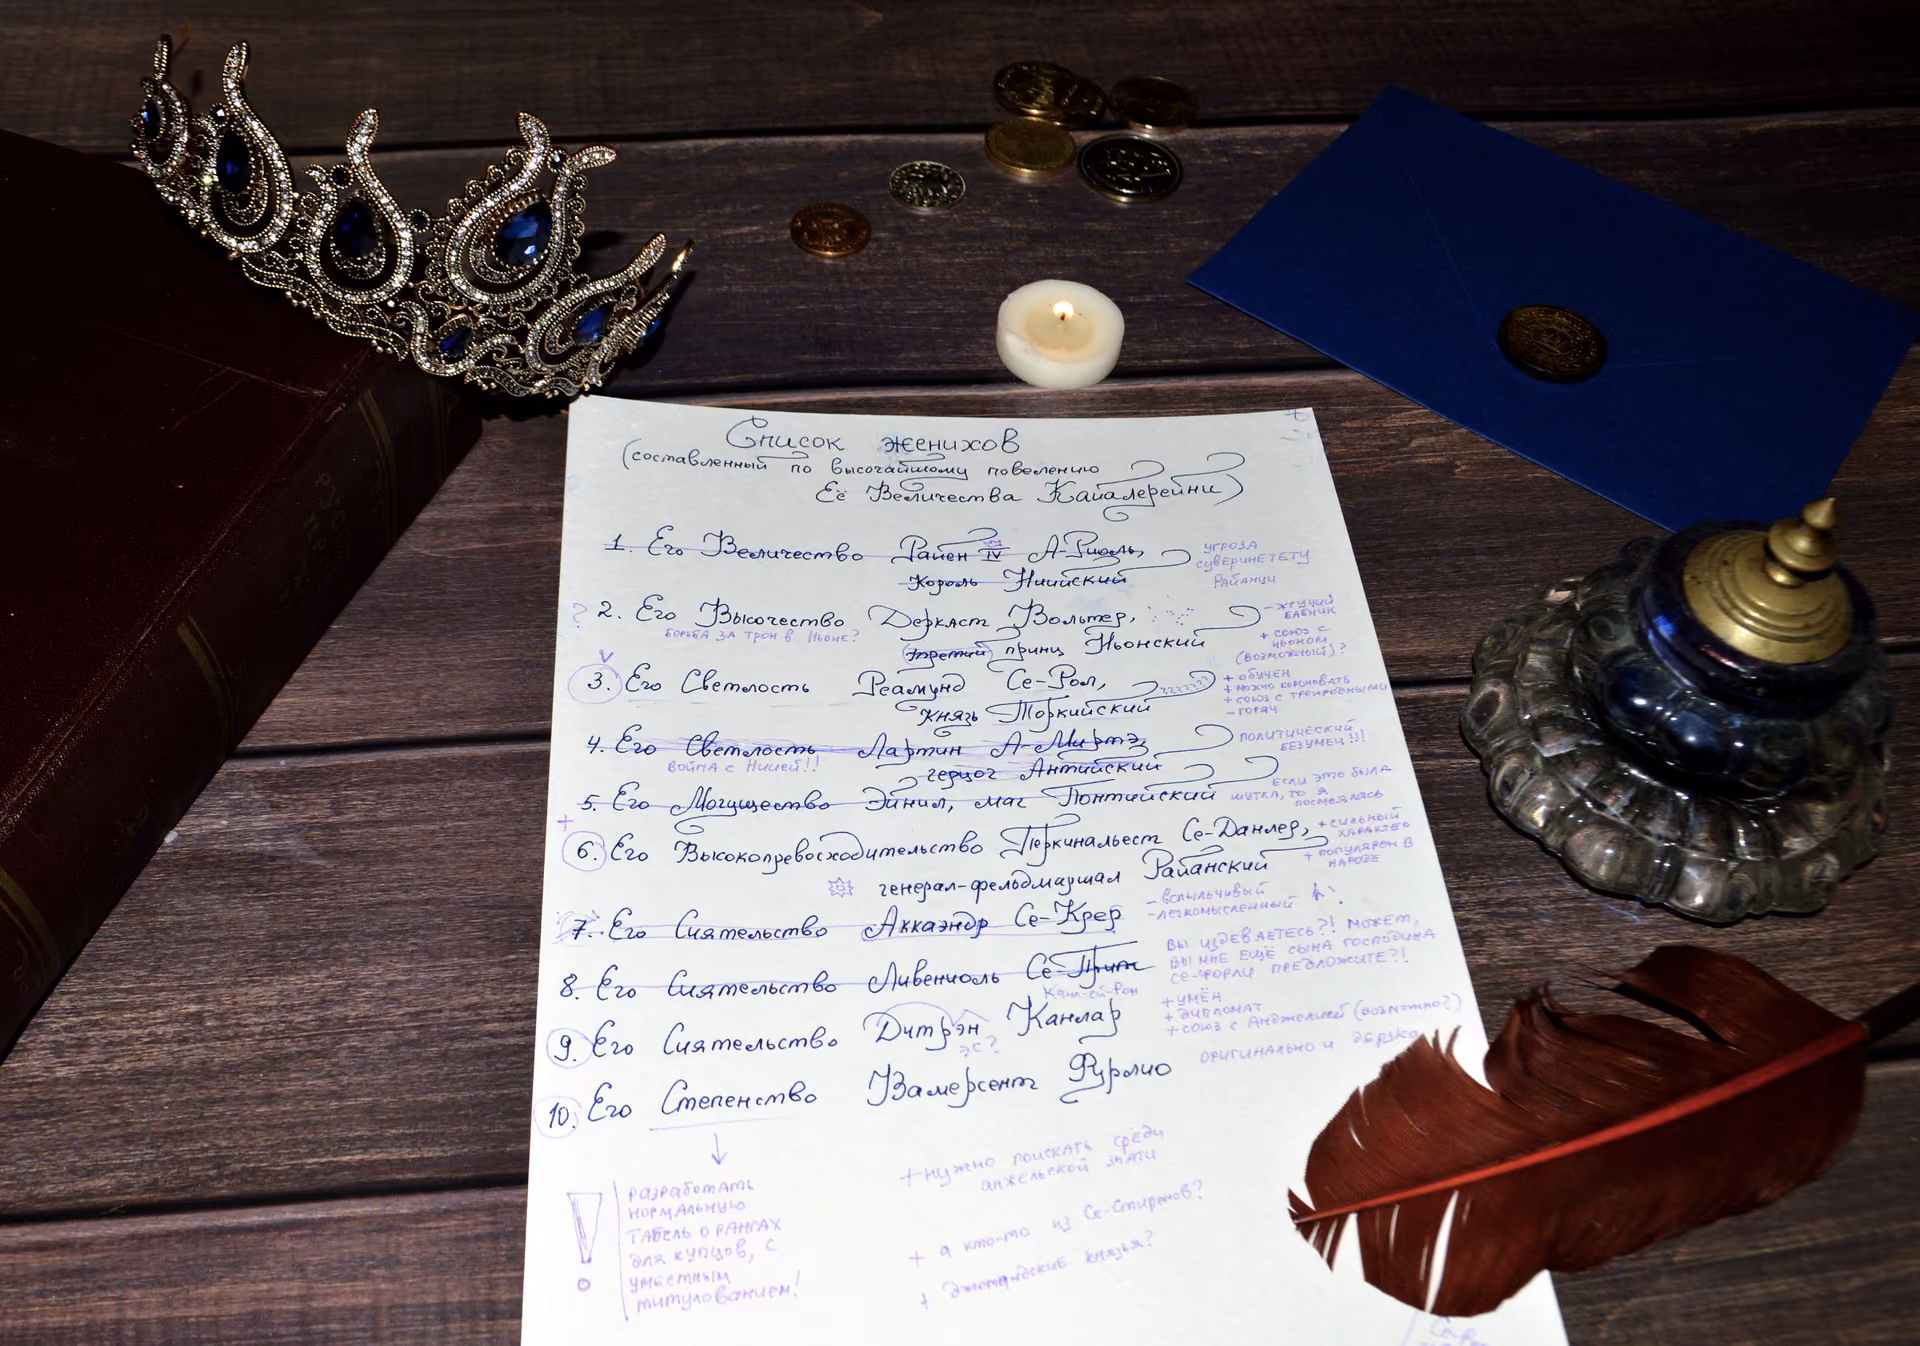 Список женихов
(составленный по высочайшому повелению
Её Величества Канаlерейни)
1. Его Величество Райен IV А-Риоль,
Король Ниийский
угроза
суверинетету
Райанци
? 2. Его Высочество Деркаст Вольтер,
борьба за трон в Ньоне?
третий принц Ньонский
- жгучий
бабник
+ союз с
Ньоном
(возможный)?
3. Его Светлость Реамунд Се-Рол,
Князь Торкийский
+ обучен
+ можно короновать
+ союз с
- горяч
4. Его Светлость Лартин А-Миртэ,
война с Ниией!!
герцог Антийский
политический
безумец!!!
5. Его Могущество Эйнил, маг Понтийский
если это была
шутка, то я
посмеялась
+
6. Его Высокопревосходительство Перкинальест Се-Данлер,
генерал-фельдмаршал Райанский
+ сильный
характер
+ популярен в
народе
7. Его Сиятельство Аккаэндр Се-Крер
- вспыльчивый
- легкомысленный
8. Его Сиятельство Ливениоль Се-Прит
вы издеваетесь?! Может,
вы мне ещё сына господина
Се-Форли предложите?!
9. Его Сиятельство Дитрэн Канлар
эс?
+ умён
+ дипломат
+ союз с Анджелией (возможно?)
10. Его Степенство Вамерсент Фурлио
оригинально и дерзко
разработать
нормальную
табель о рангах
для купцов, с
уместным
титулованием!
+ нужно поискать среди
анжельской знати
+ а кто-то из Се-Стиров?
+ князья?